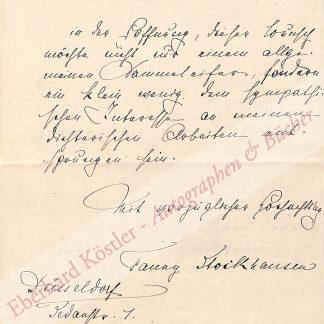 in der Hoffnung, dieser Wunsch
möchte nicht nur einem allge-
meinen Sammeleifer, sondern
ein klein wenig dem sympathi-
schen Interesse an meinen
dichterischen Arbeiten ent-
sprungen sein.
Mit vorzüglicher Hochachtung
Fanny Stockhausen
Düsseldorf
Sedanstr. 1.
Eberhard Köstler - Autographen & Bücher